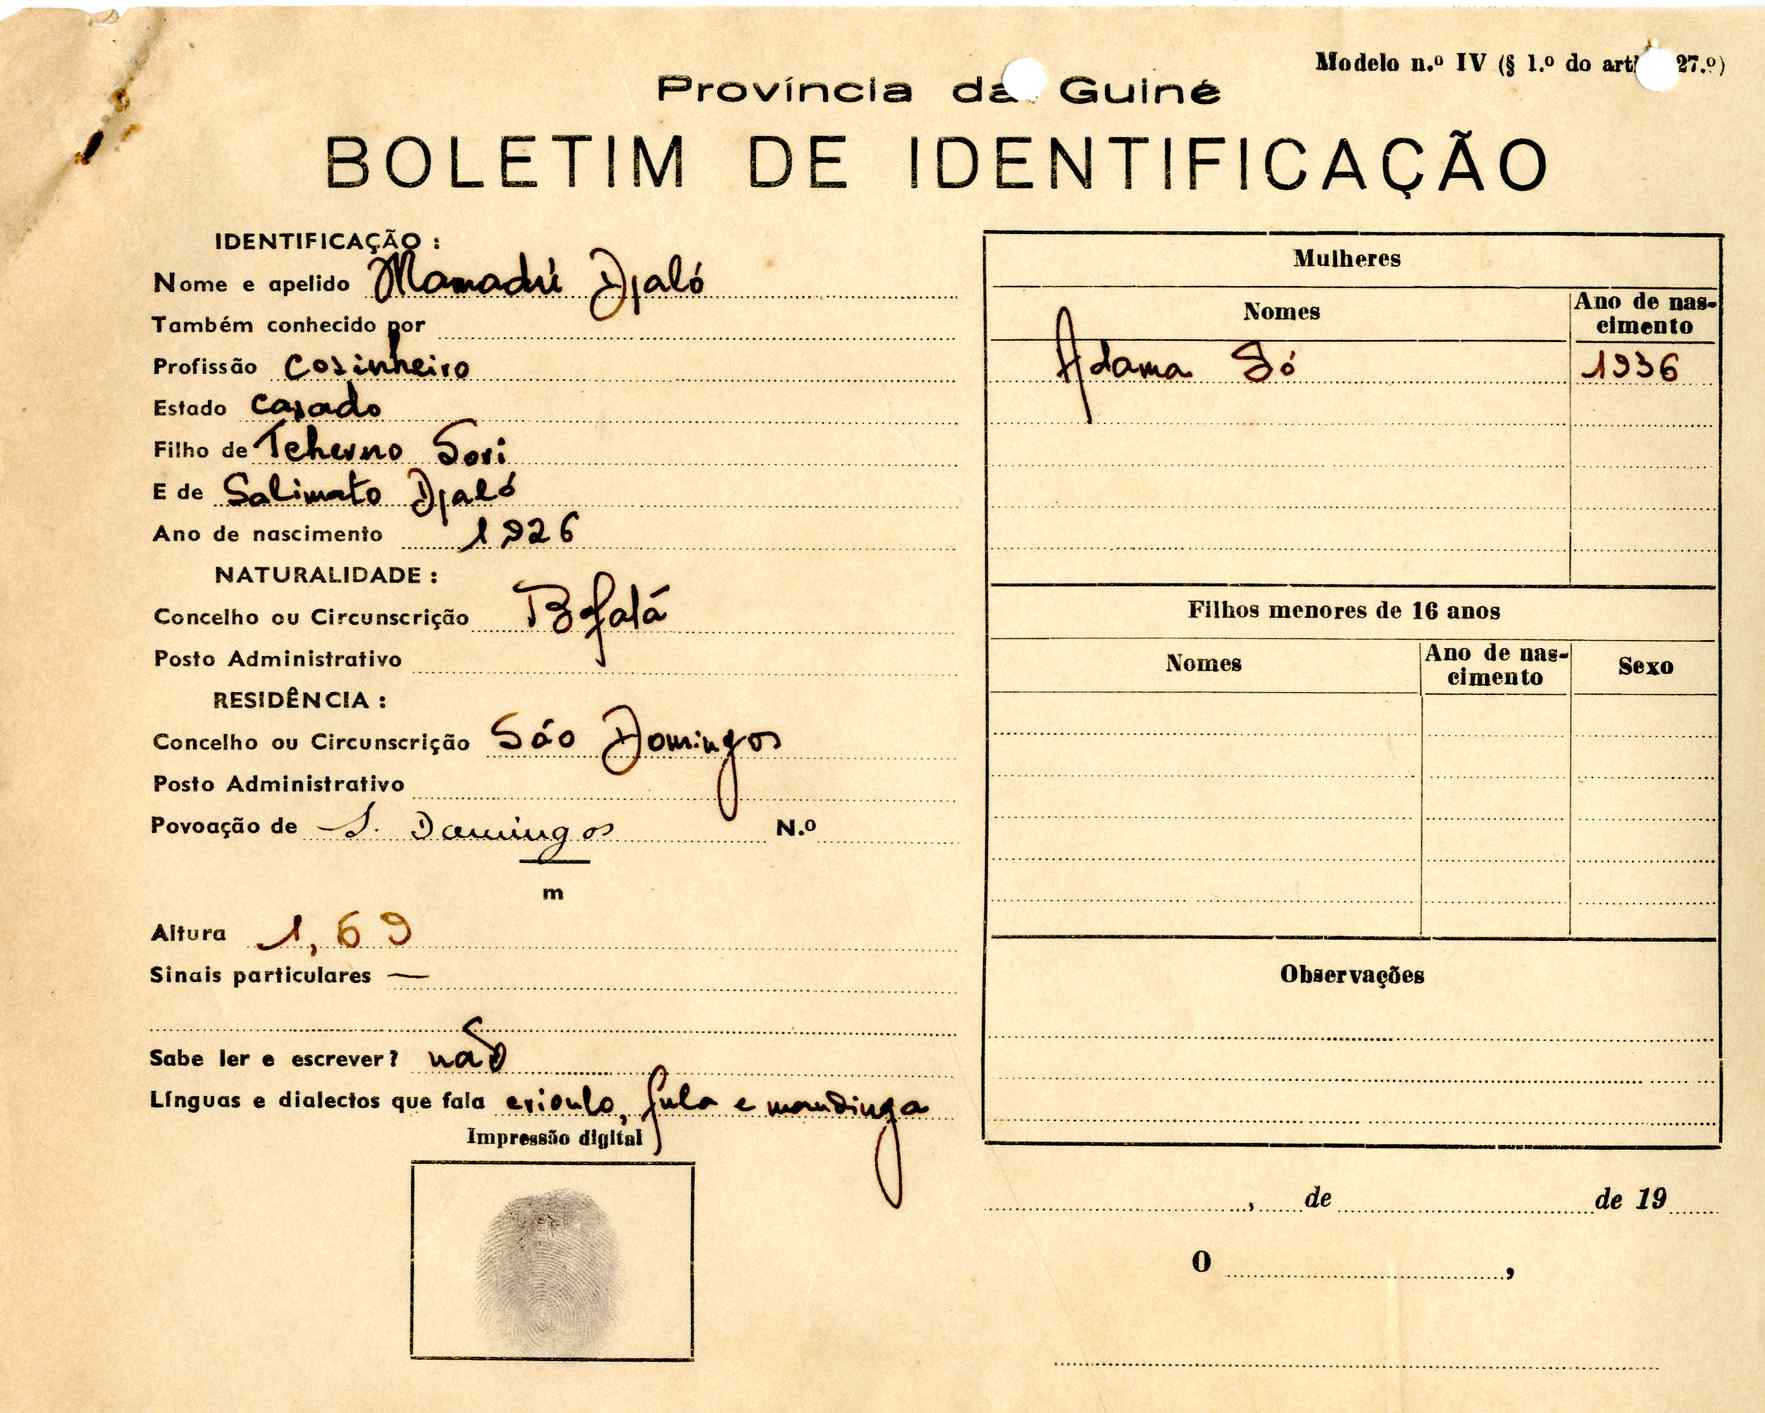 Modelo n.º IV (§ 1.º do art. 27.º)
Província da Guiné
BOLETIM DE IDENTIFICAÇÃO
IDENTIFICAÇÃO :
Nome e apelido Mamadú Djaló
Também conhecido por
Profissão Cosinheiro
Estado Casado
Filho de Tcherno Sori
E de Salimato Djaló
Ano de nascimento 1926
NATURALIDADE :
Concelho ou Circunscrição Bafatá
Posto Administrativo
RESIDÊNCIA :
Concelho ou Circunscrição São Domingos
Posto Administrativo
Povoação de S. Domingos N.º
m
Altura 1,69
Sinais particulares —
Sabe ler e escrever? não
Línguas e dialectos que fala crioulo, fula e mandinga
Impressão digital
Mulheres
Nomes Ano de nas-
cimento
Adama Só 1936
Filhos menores de 16 anos
Nomes Ano de nas-
cimento Sexo
Observações
, de de 19
O ,